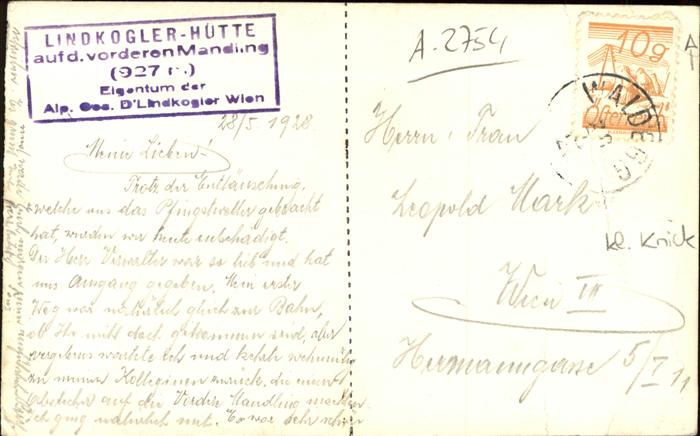 LINDKOGLER-HÜTTE
auf d. vorderen Mandling
(927 m.)
Eigentum der
Alp. Ges. D'Lindkogler Wien
28/5 1928.
Meine Lieben!
Trotz der Enttäuschung,
welche uns das Pfingstwetter gebracht
hat, wurden wir heute entschädigt.
Der Herr Verwalter war so lieb und hat
uns Ausgang gegeben. Mein erster
Weg war natürlich gleich zur Bahn,
ob Ihr nicht doch gekommen seid, aber
vergebens wartete ich und kehrte wehmütig
zu meinen Kolleginen zurück, die einen
Abstecher auf die Vordere Mandling machten
ich ging natürlich mit. Es war sehr schön
A. 2754
10g
Österreich
WALD
Herrn, Frau
Leopold Mark
Wien III
Hermanngasse 5/I 11
kl. Knick